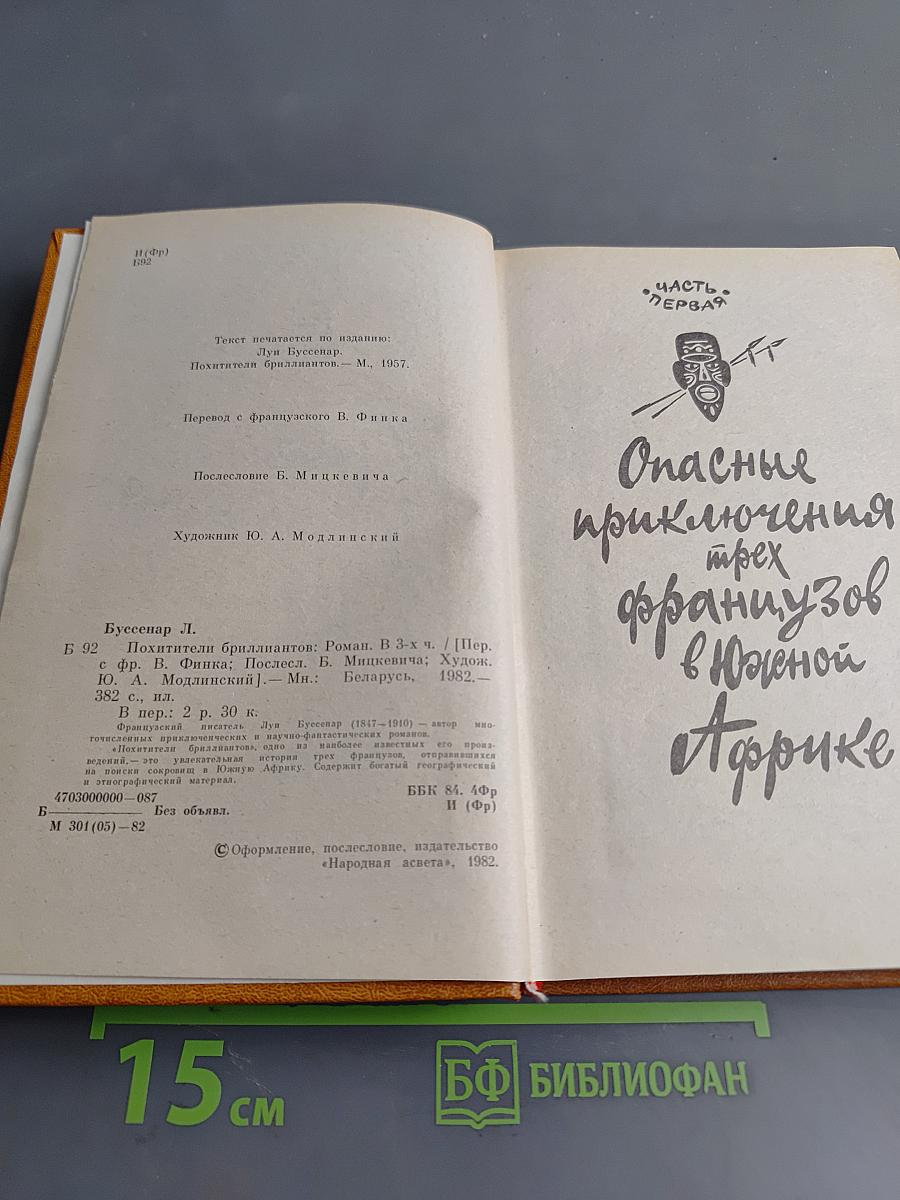 И(Фр)
Б92
Текст печатается по изданию:
Луи Буссенар.
Похитители бриллиантов.— М., 1957.
Перевод с французского В. Финка
Послесловие Б. Мицкевича
Художник Ю. А. Модлинский
Буссенар Л.
Б 92 Похитители бриллиантов: Роман. В 3-х ч. / [Пер.
с фр. В. Финка; Послесл. Б. Мицкевича; Худож.
Ю. А. Модлинский].— Мн.: Беларусь, 1982.—
382 с., ил.
В пер.: 2 р. 30 к.
Французский писатель Луи Буссенар (1847—1910) — автор мно-
гочисленных приключенческих и научно-фантастических романов.
«Похитители бриллиантов», одно из наиболее известных его произ-
ведений,— это увлекательная история трех французов, отправившихся
на поиски сокровищ в Южную Африку. Содержит богатый географический
и этнографический материал.
4703000000—087
Б Без объявл.
М 301(05)—82
ББК 84. 4Фр
И (Фр)
© Оформление, послесловие, издательство
«Народная асвета», 1982.
ЧАСТЬ
ПЕРВАЯ
Опасные
приключения
трех
французов
в Южной
Африке
15 см
БФ БИБЛИОФАН